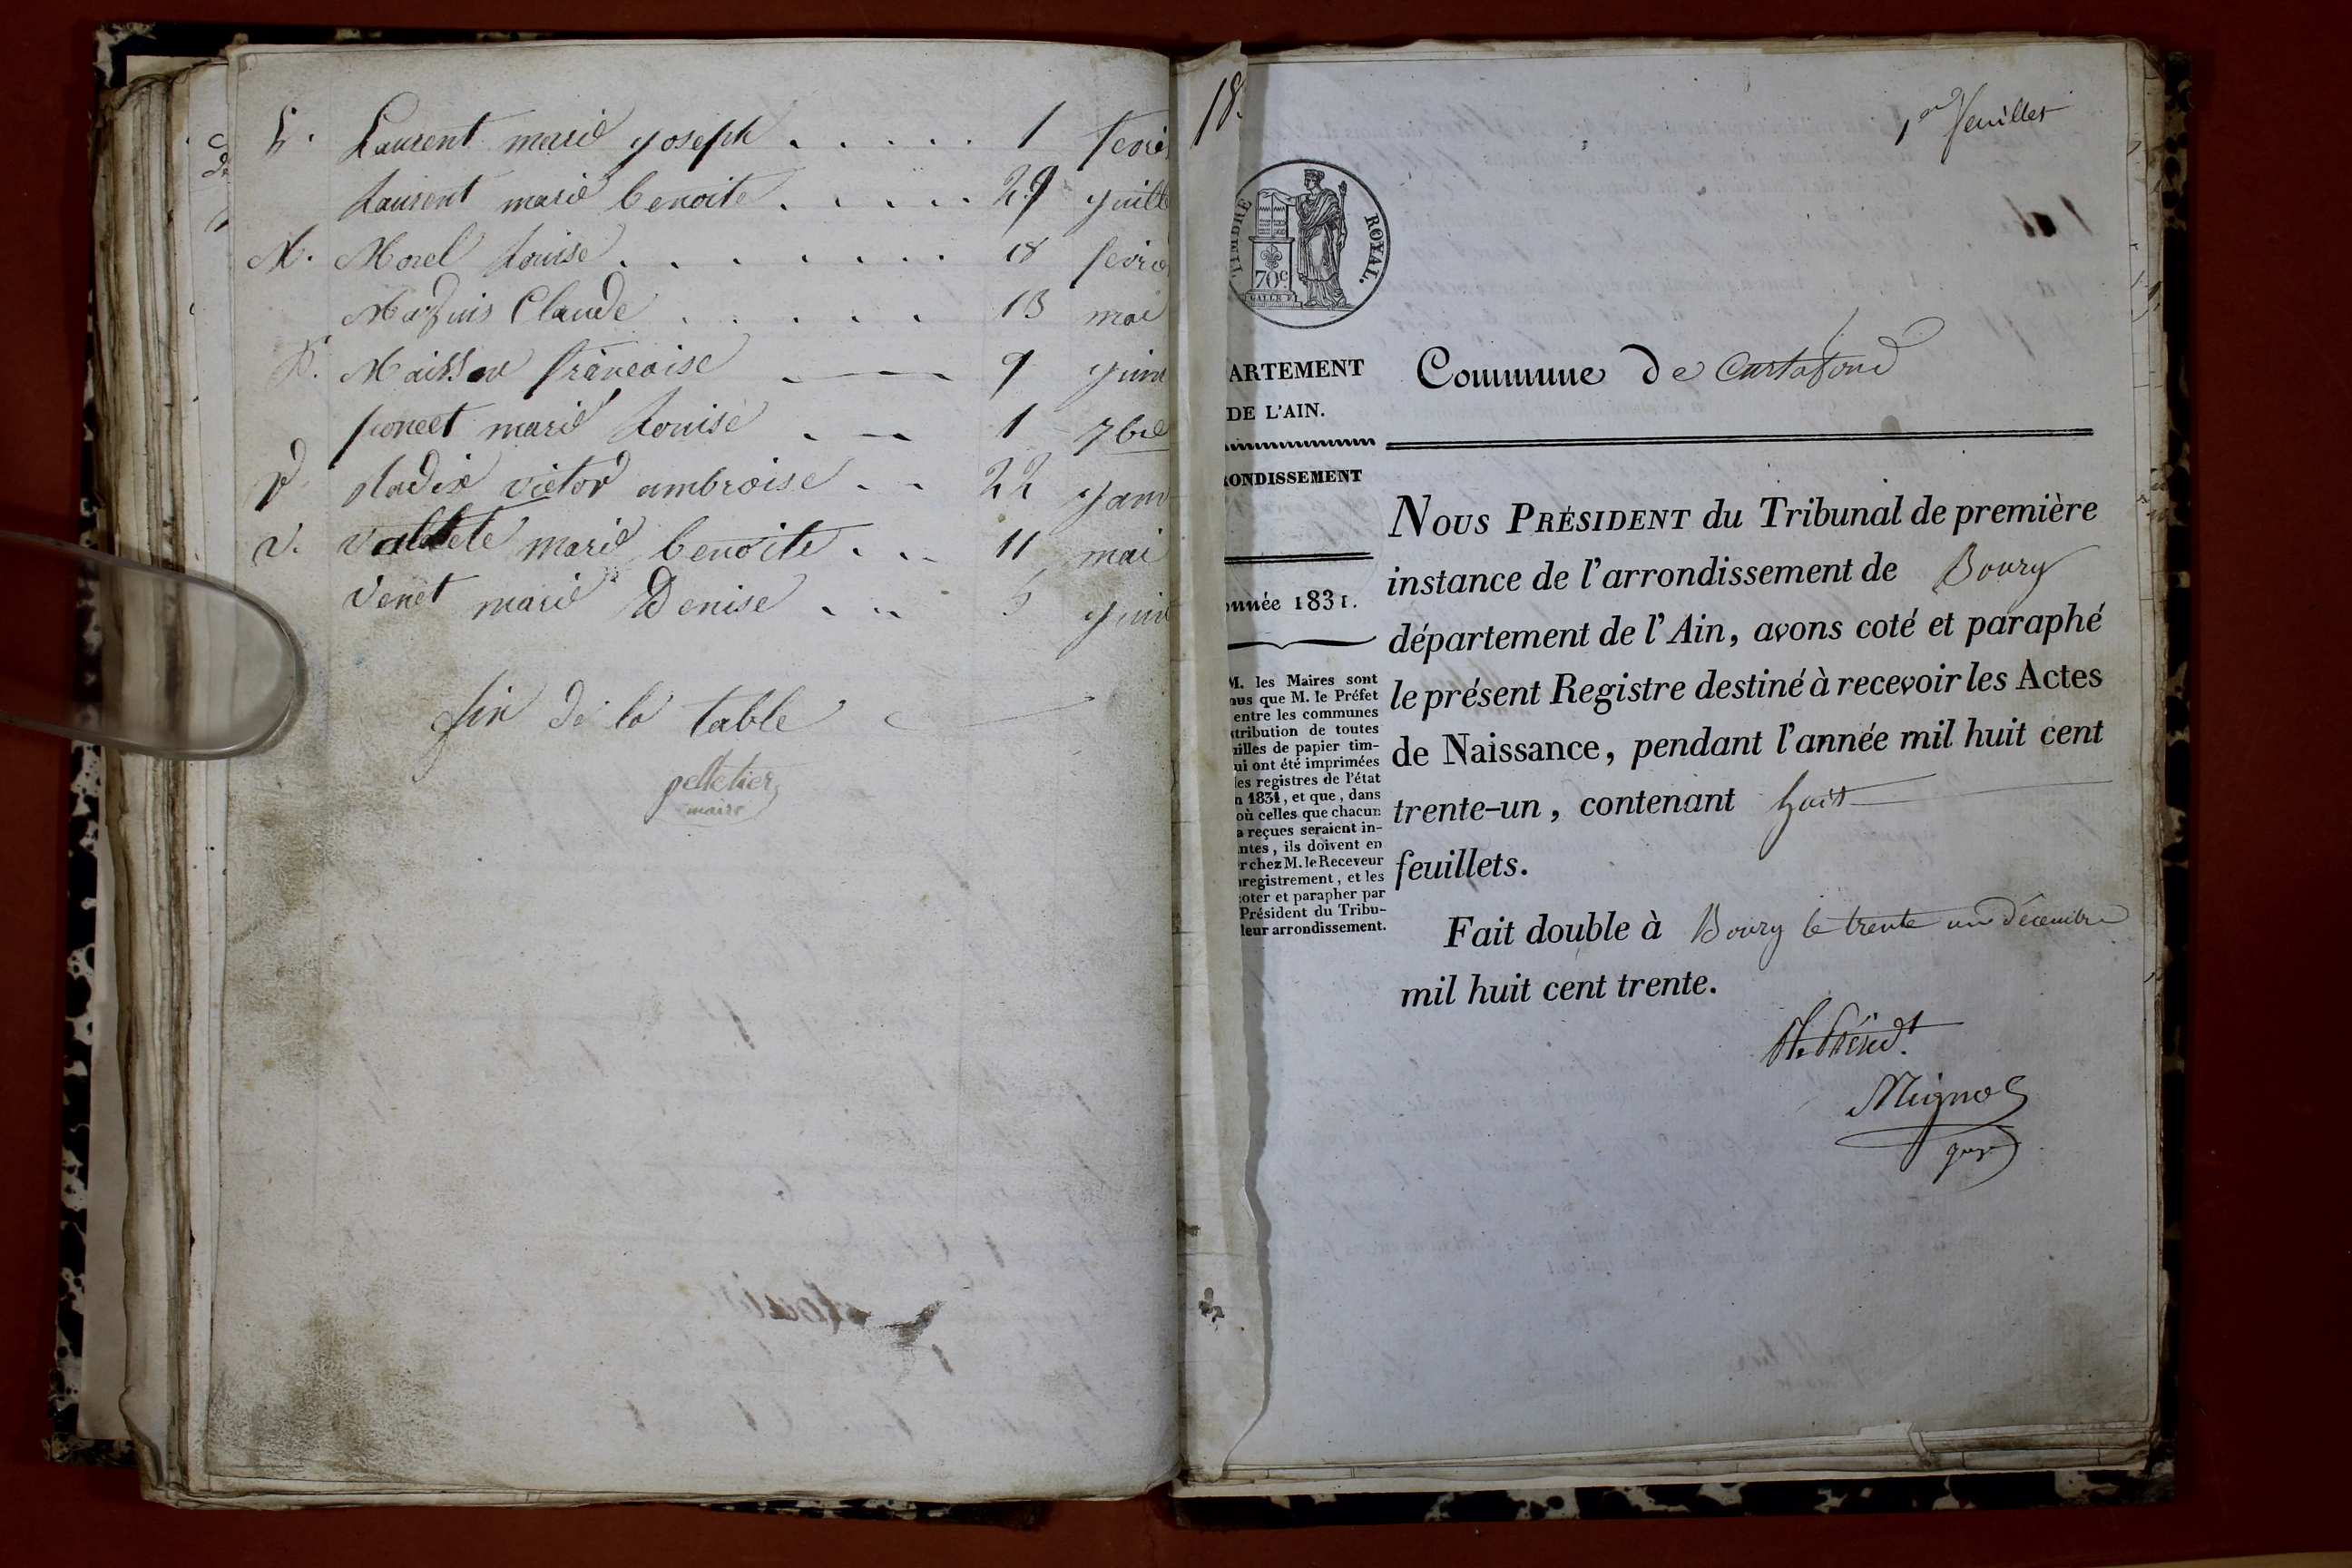 L. Laurent marie joseph . . . . . 1 fevri
Laurent marie benoite . . . . . 29 juill
M. Morel Louise . . . . . . . 18 fevri
Claude . . . . . 13 mai
francoise 9 juin
poncet marie Louise 1 7bre
victor ambroise . . 22 janv
V. marie benoite . . . 11 mai
Venet marie Denise . . . 5 juin
fin de la table
pelletier
maire
18.
1er feuillet
TIMBRE ROYAL.
70c
GALLE F.
ARTEMENT
DE L'AIN.
Commune de Curtafond
RONDISSEMENT
nnée 1831.
M. les Maires sont
nus que M. le Préfet
entre les communes
tribution de toutes
uilles de papier tim-
ui ont été imprimées
les registres de l'état
n 1831, et que, dans
où celles que chacun
a reçues seraient in-
ntes, ils doivent en
r chez M. le Receveur
nregistrement, et les
coter et parapher par
Président du Tribu-
leur arrondissement.
NOUS PRÉSIDENT du Tribunal de première
instance de l'arrondissement de Bourg
département de l'Ain, avons coté et paraphé
le présent Registre destiné à recevoir les Actes
de Naissance, pendant l'année mil huit cent
trente-un, contenant huit
feuillets.
Fait double à Bourg le trente un décembre
mil huit cent trente.